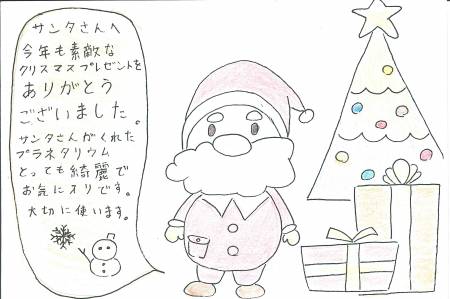 サンタさんへ
今年も素敵な
クリスマスプレゼントを
ありがとう
ございました。
サンタさんがくれた
プラネタリウム
とっても綺麗で
お気に入りです。
大切に使います。